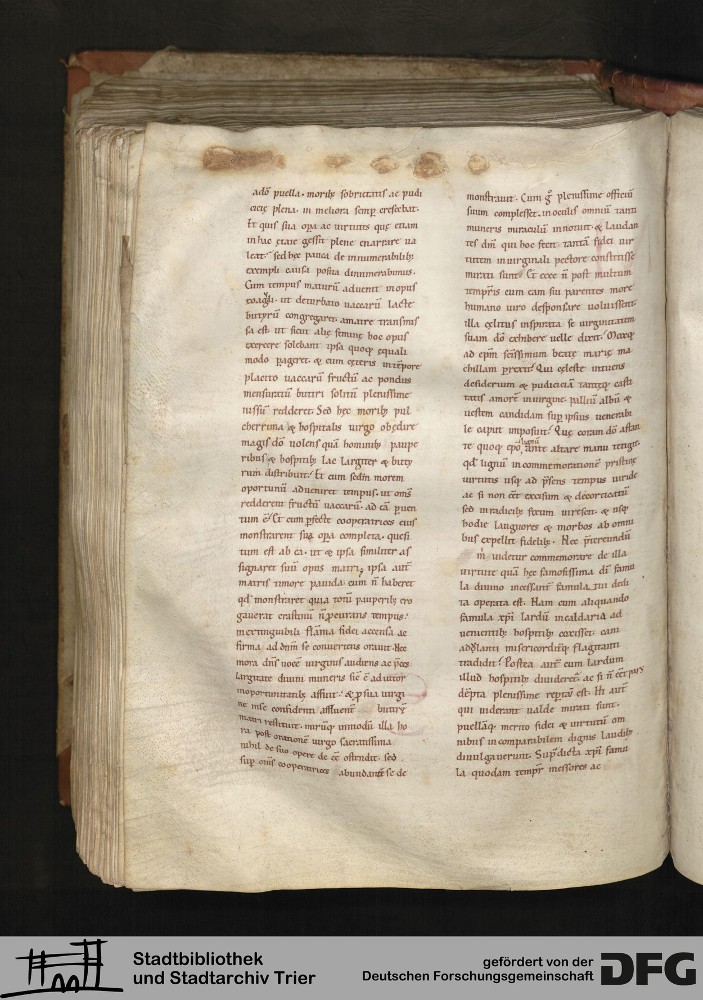 ado puella. morib; sobrietatis ac pudi
cicię plena. in meliora semp crescebat.
Et quis sua opa ac virtutes quę etiam
in hac ętate gessit plene enarrare va
leat? sed hęc pauca de innumerabilib;
exempli causa posita dinumerabimus.
Cum tempus maturū advenit in opus
coaguli. ut de turbato vaccarū lacte
butyrū congregaret. a matre transmis
sa est. ut sicut alię feminę hoc opus
exercere solebant ipsa quoq; ęquali
modo pageret. & cum cęteris in tēpore
placito vaccarū fructū ac pondus
mensuratū butiri solitū plenissime
iussū redderet. Sed hęc morib; pul
cherrima & hospitalis virgo obędire
magis dō volens quā hominib; paupe
rib; & hospitib; lac largiter & buty
rum distribuit. Et cum sedm morem
oportunū adveniret tempus. ut oms
redderent fructū vaccarū. ad eā puen
tum ē. Et cum pfectę cooperatrices eius
monstrarent sua opa completa. quesi
tum est ab ea. ut & ipsa similiter as
signaret suū opus matri. ipsa aut
matris timore pavida. cum n haberet
qd monstraret quia totū pauperib; ero
gaverat crastinū n pcurans tempus.
inextinguibili flāma fidei accensa ac
firma. ad dnm se convertens oravit. Nec
mora dns vocē virginis audiens ac pces
largitate divini muneris sic ē adiutor
in oportunitatib; affuit. & p sua virgi
ne in se confidenti affluent butyrū
matri restituit. mirūq; inmodū illa ho
ra post orationē virgo sacratissima
nihil de suo opere de eē ostendit. sed
sup oms cooperatrices abundanſ se de
monstravit. Cum g plenissime officiū
suum complesset. in oculis omniū tanti
muneris miraculū innotuit. & laudan
tes dm qui hoc fecit tantā fidei vir
tutem in virginali pectore constitisse
mirati sunt. Et ecce n post multum
tempris cum eam sui parentes more
humano viro desponsare voluissent.
illa cęlitus inspirata se virginitatem
suam dō exhibere velle dixit. Moxq;
ad epm scissimum beatę marię ma
chillam prexit. Qui cęleste intuens
desiderum & pudiciciā tantęq; casti
tatis amorē in virgine. palliū albū &
vestem candidam sup ipsius venerabi
le caput imposuit. Quę coram dō astan
te quoq; epo ligneū ante altare manu tetigit.
qd lignū in commemorationē pristinę
virtutis usq; ad psens tempus viride
ac si non eēt excisum & decorticatū
sed in radicib; fixum virescit. & usq;
hodie languores & morbos ab omni
bus expellit fidelib;. Nec ptereundū
m videtur commemorare de illa
virtute quā hęc famosissima di famu
la divino incessant famulatui dedi
ta operata est. Nam cum aliquando
famula xpi lardū in caldaria ad
venientib; hospitib; coxisset. cani
adblanti misericorditq; flagitanti
tradidit. Postea aut cum lardum
illud hospitib; divideret. ac si n eēt pars
dēpta plenissime reptaū est. Hi aut
qui viderant valde mirati sunt.
puellāq; merito fidei & virtutū om
nibus incomparabilem dignis laudib;
divulgaverunt. Supdicta xpi famu
la quodam tempr messores ac
Stadtbibliothek
und Stadtarchiv Trier
gefördert von der
Deutschen Forschungsgemeinschaft
DFG